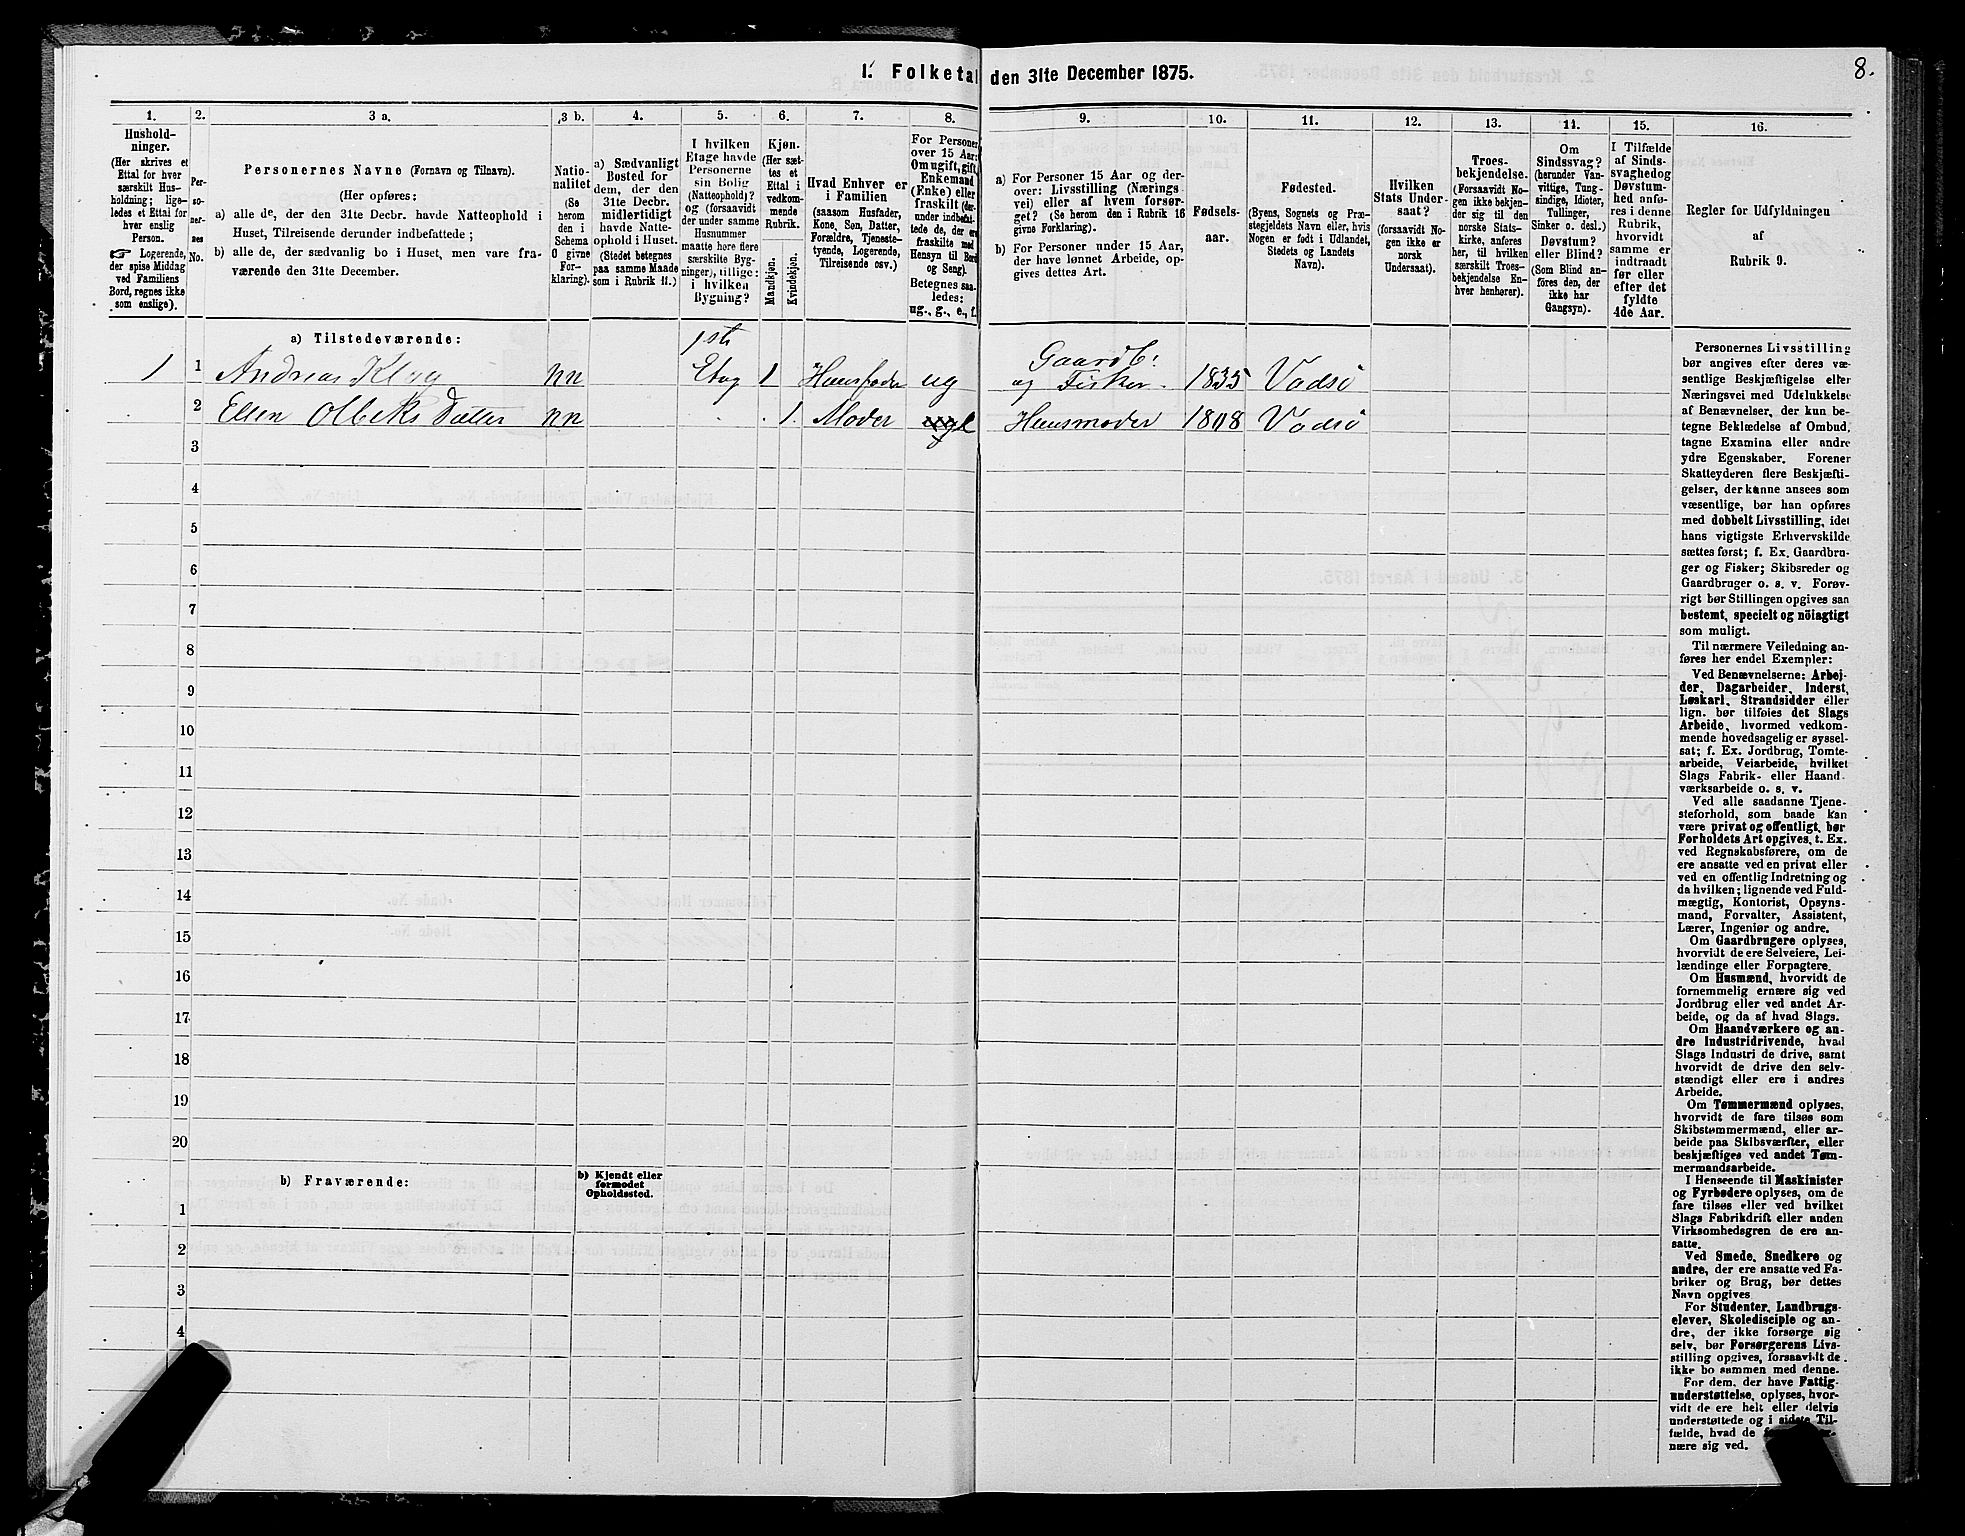 1. Folketal den 31te December 1875.
8.
1.
Hushold-
ninger.
(Her skrives et
Ettal for hver
særskilt Hus-
holdning; lige-
ledes et Ettal for
hver enslig
Person.
☞ Logerende,
der spise Middag
ved Familiens
Bord, regnes ikke
som enslige).
2.
Per-
so-
ner-
nes
No.
3 a.
Personernes Navne (Fornavn og Tilnavn).
(Her opføres:
a) alle de, der den 31te Decbr. havde Natteophold i
Huset, Tilreisende derunder indbefattede;
b) alle de, der sædvanlig bo i Huset, men vare fra-
værende den 31te December.
3 b.
Natio-
nalitet
(Se
herom
den i
Schema
O givne
For-
klaring).
4.
a) Sædvanligt
Bosted for
dem, der den
31te Decbr.
midlertidigt
havde Natte-
ophold i Huset.
(Stedet betegnes
paa samme Maade
som i Rubrik 11.)
5.
I hvilken
Etage havde
Personerne
sin Bolig
(Natteophold)?
og (forsaavidt
der under samme
Husnummer
maatte høre flere
særskilte Byg-
ninger), tillige:
i hvilken
Bygning?
6.
Kjøn.
(Her sæt-
tes et
Ettal i
vedkom-
mende
Rubrik.
Mandkjøn.
Kvindekjøn.
7.
Hvad Enhver er
i Familien
(saasom Husfader,
Kone, Søn, Datter,
Forældre, Tjeneste-
tyende, Logerende,
Tilreisende osv.)
8.
For Personer
over 15 Aar:
Om ugift, gift,
Enkemand
(Enke) eller
fraskilt (der-
under indbefat-
tede de, der ere
fraskilte med
Hensyn til Bord
og Seng).
Betegnes saa-
ledes:
ug., g., e., f.
9.
a) For Personer 15 Aar og der-
over: Livsstilling (Nærings
vei) eller af hvem forsør-
get? (Se herom den i Rubrik 16
givne Forklaring).
b) For Personer under 15 Aar,
der have lønnet Arbeide, op-
gives dettes Art.
10.
Fødsels-
aar.
11.
Fødested.
(Byens, Sognets og Præ-
stegjeldets Navn eller, hvis
Nogen er født i Udlandet,
Stedets og Landets
Navn).
12.
Hvilken
Stats Under-
saat?
(forsaavidt No-
gen ikke er
norsk
Undersaat).
13.
Troes-
bekjendelse.
(Forsaavidt No-
gen ikke bekjen-
der sig til den
norske Stats-
kirke, anføres
her, til hvilken
særskilt Troes-
bekjendelse En-
hver henhører).
14.
Om
Sindssvag?
(herunder Van-
vittige, Tung-
sindige, Idioter,
Tullinger,
Sinker o. desl.)
Døvstum?
eller Blind?
(Som Blind an-
føres den, der
ikke har
Gangsyn).
15.
I Tilfælde
af Sinds-
svaghed og
Døvstum-
hed anfø-
res i denne
Rubrik,
hvorvidt
samme er
indtraadt
før eller
efter det
fyldte
4de Aar.
16.
Regler for Udfyldningen
af
Rubrik 9.
a) Tilstedeværende:
1 1 Andreas Klog nn 1ste Etag 1 Huusfader ug Gaardb: og Fisker 1835 Vadsö
2 Ellen Olbeks Datter nn 1. Moder e Huusmoder 1808 Vadsö
3
4
5
6
7
8
9
10
11
12
13
14
15
16
17
18
19
20
b) Fraværende:
b) Kjendt eller
formodet
Opholdssted.
1
2
3
4
Personernes Livsstilling
bør angives efter deres væ-
sentlige Beskjæftigelse eller
Næringsvei med Udelukkelse
af Benævnelser, der kun be-
tegne Beklædelse af Ombud,
tagne Examina eller andre
ydre Egenskaber. Forener
Skatteyderen flere Beskjæfti-
gelser, der kunne ansees som
væsentlige, bør han opføres
med dobbelt Livsstilling, idet
hans vigtigste Erhvervskilde
sættes først; f. Ex. Gaardbru-
ger og Fisker; Skibsreder og
Gaardbruger o. s. v. Forøv-
rigt bør Stillingen opgives saa
bestemt, specielt og nöiagtigt
som muligt.
Til nærmere Veiledning an-
føres her endel Exempler:
Ved Benævnelserne: Arbej-
der, Dagarbeider, Inderst,
Løskarl, Strandsidder eller
lign. bør tilføies det Slags
Arbeide, hvormed vedkom-
mende hovedsagelig er syssel-
sat; f. Ex. Jordbrug, Tomte-
arbeide, Veiarbeide, hvilket
Slags Fabrik- eller Haand-
værksarbeide o. s. v.
Ved alle saadanne Tjene-
steforhold, som baade kan
være privat og offentligt, bør
Forholdets Art opgives, t. Ex.
ved Regnskabsførere, om de
ere ansatte ved en privat eller
ved en offentlig Indretning og
da hvilken; lignende ved Fuld-
mægtig, Kontorist, Opsyns-
mand, Forvalter, Assistent,
Lærer, Ingeniør og andre.
Om Gaardbrugere oplyses,
hvorvidt de ere Selveiere, Lei-
lændinge eller Forpagtere.
Om Husmænd, hvorvidt de
fornemmelig ernære sig ved
Jordbrug eller ved andet Ar-
beide, og da af hvad Slags.
Om Haandværkere og an-
dre Industridrivende, hvad
Slags Industri de drive, samt
hvorvidt de drive den selv-
stændigt eller ere i andres
Arbeide.
Om Tømmermænd oplyses,
hvorvidt de fare tilsøs som
Skibstømmermænd, eller ar-
beide paa Skibsværfter, eller
beskjæftiges ved andet Tøm-
mermandsarbeide.
I Henseende til Maskinister
og Fyrbødere oplyses, om de
fare tilsøs eller ved hvilket
Slags Fabrikdrift eller anden
Virksomhedsgren de ere an-
satte.
Ved Smede, Snedkere og
andre, der ere ansatte ved Fa-
briker og Brug, bør dettes
Navn opgives
For Studenter, Landbrugs-
elever, Skoledisciple og an-
dre, der ikke forsørge sig
selv, bør Forsørgerens Livs-
stilling opgives, forsaavidt de
ikke bo sammen med denne.
For dem, der have Fattig-
understøttelse, oplyses, hvor-
vidt de ere helt eller delvis
understøttede og i sidste Til-
fælde, hvad de
nære sig ved.